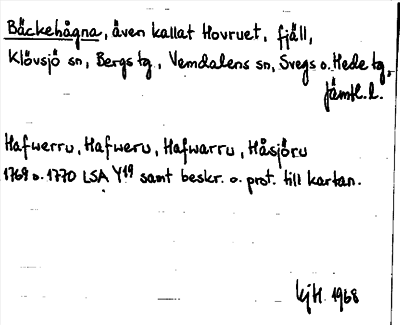 Bäckehågna, även kallat Hovruet, fjäll,
Klövsjö sn, Bergs tg, Vemdalens sn, Svegs o. Hede tg,
Jämtl. l.
Hafwerru, Hafweru, Hafwarru, Håsjöru
1769 o. 1770 LSA Y19 samt beskr. o. prot. till kartan.
1968